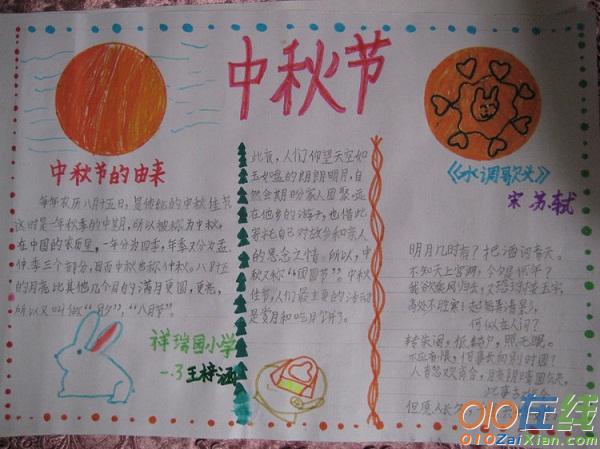 中秋节
中秋节的由来
每年农历八月十五日,是传统的中秋佳节
这时是一年秋季的中期,所以被称为中秋。
在中国的农历里,一年分为四季,每季又分为孟
仲季三个部分,因而中秋也称仲秋。八月十五
的月亮比其他几个月的满月更圆,更亮,
所以又叫做“月夕”,“八月节”。
祥瑞园小学
一.3 王梓涵
此夜,人们仰望天空如
玉如盘的朗朗明月,自
然会期盼家人团聚。远
在他乡的游子,也借此
寄托自己对故乡和亲人
的思念之情。所以,中
秋又称“团圆节”。中秋
佳节,人们最主要的活动
是赏月和吃月饼了。
《水调歌头》
宋 苏轼
明月几时有?把酒问青天。
不知天上宫阙,今夕是何年?
我欲乘风归去,又恐琼楼玉宇,
高处不胜寒!起舞弄清影,
何似在人间?
转朱阁,低绮户,照无眠。
不应有恨,何事长向别时圆?
人有悲欢离合,月有阴晴圆缺,
此事古
但愿人长久,
010在线
010ZaiXian.com